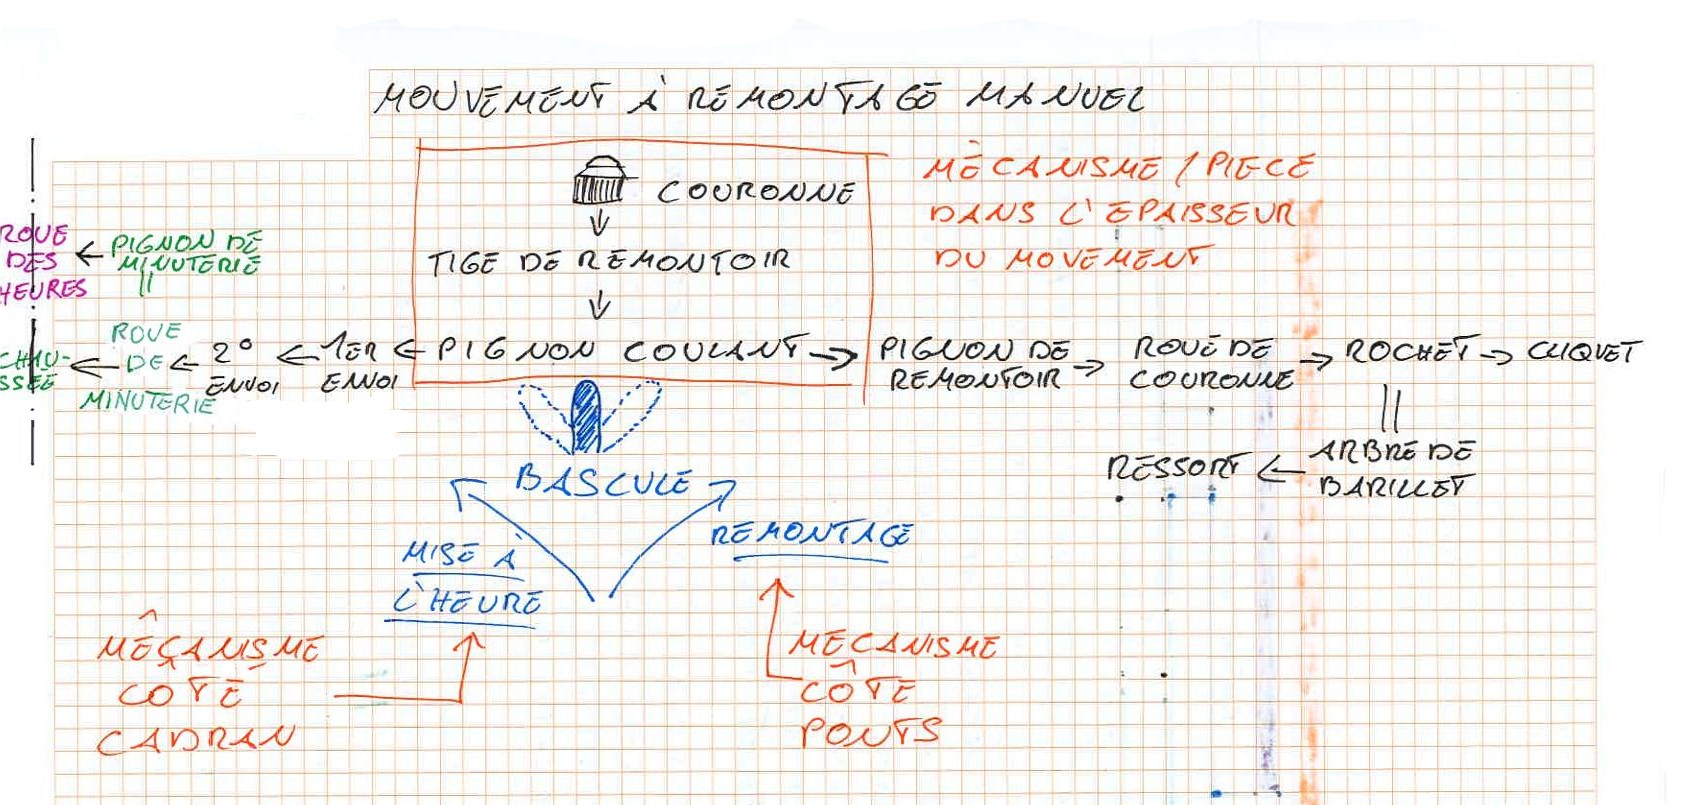 MOUVEMENT À REMONTAGE MANUEL
COURONNE
TIGE DE REMONTOIR
MÉCANISME / PIECE
DANS L'EPAISSEUR
DU MOVEMENT
ROUE
DES
HEURES
PIGNON DE
MINUTERIE
CHAU-
SSÉE
ROUE
DE
MINUTERIE
2°
ENVOI
1ER
ENVOI
PIGNON COULANT
PIGNON DE
REMONTOIR
ROUE DE
COURONNE
ROCHET
CLIQUET
ARBRE DE
BARILLET
RESSORT
BASCULE
MISE À
L'HEURE
REMONTAGE
MÉCANISME
CÔTÉ
CADRAN
MECANISME
CÔTE
PONTS